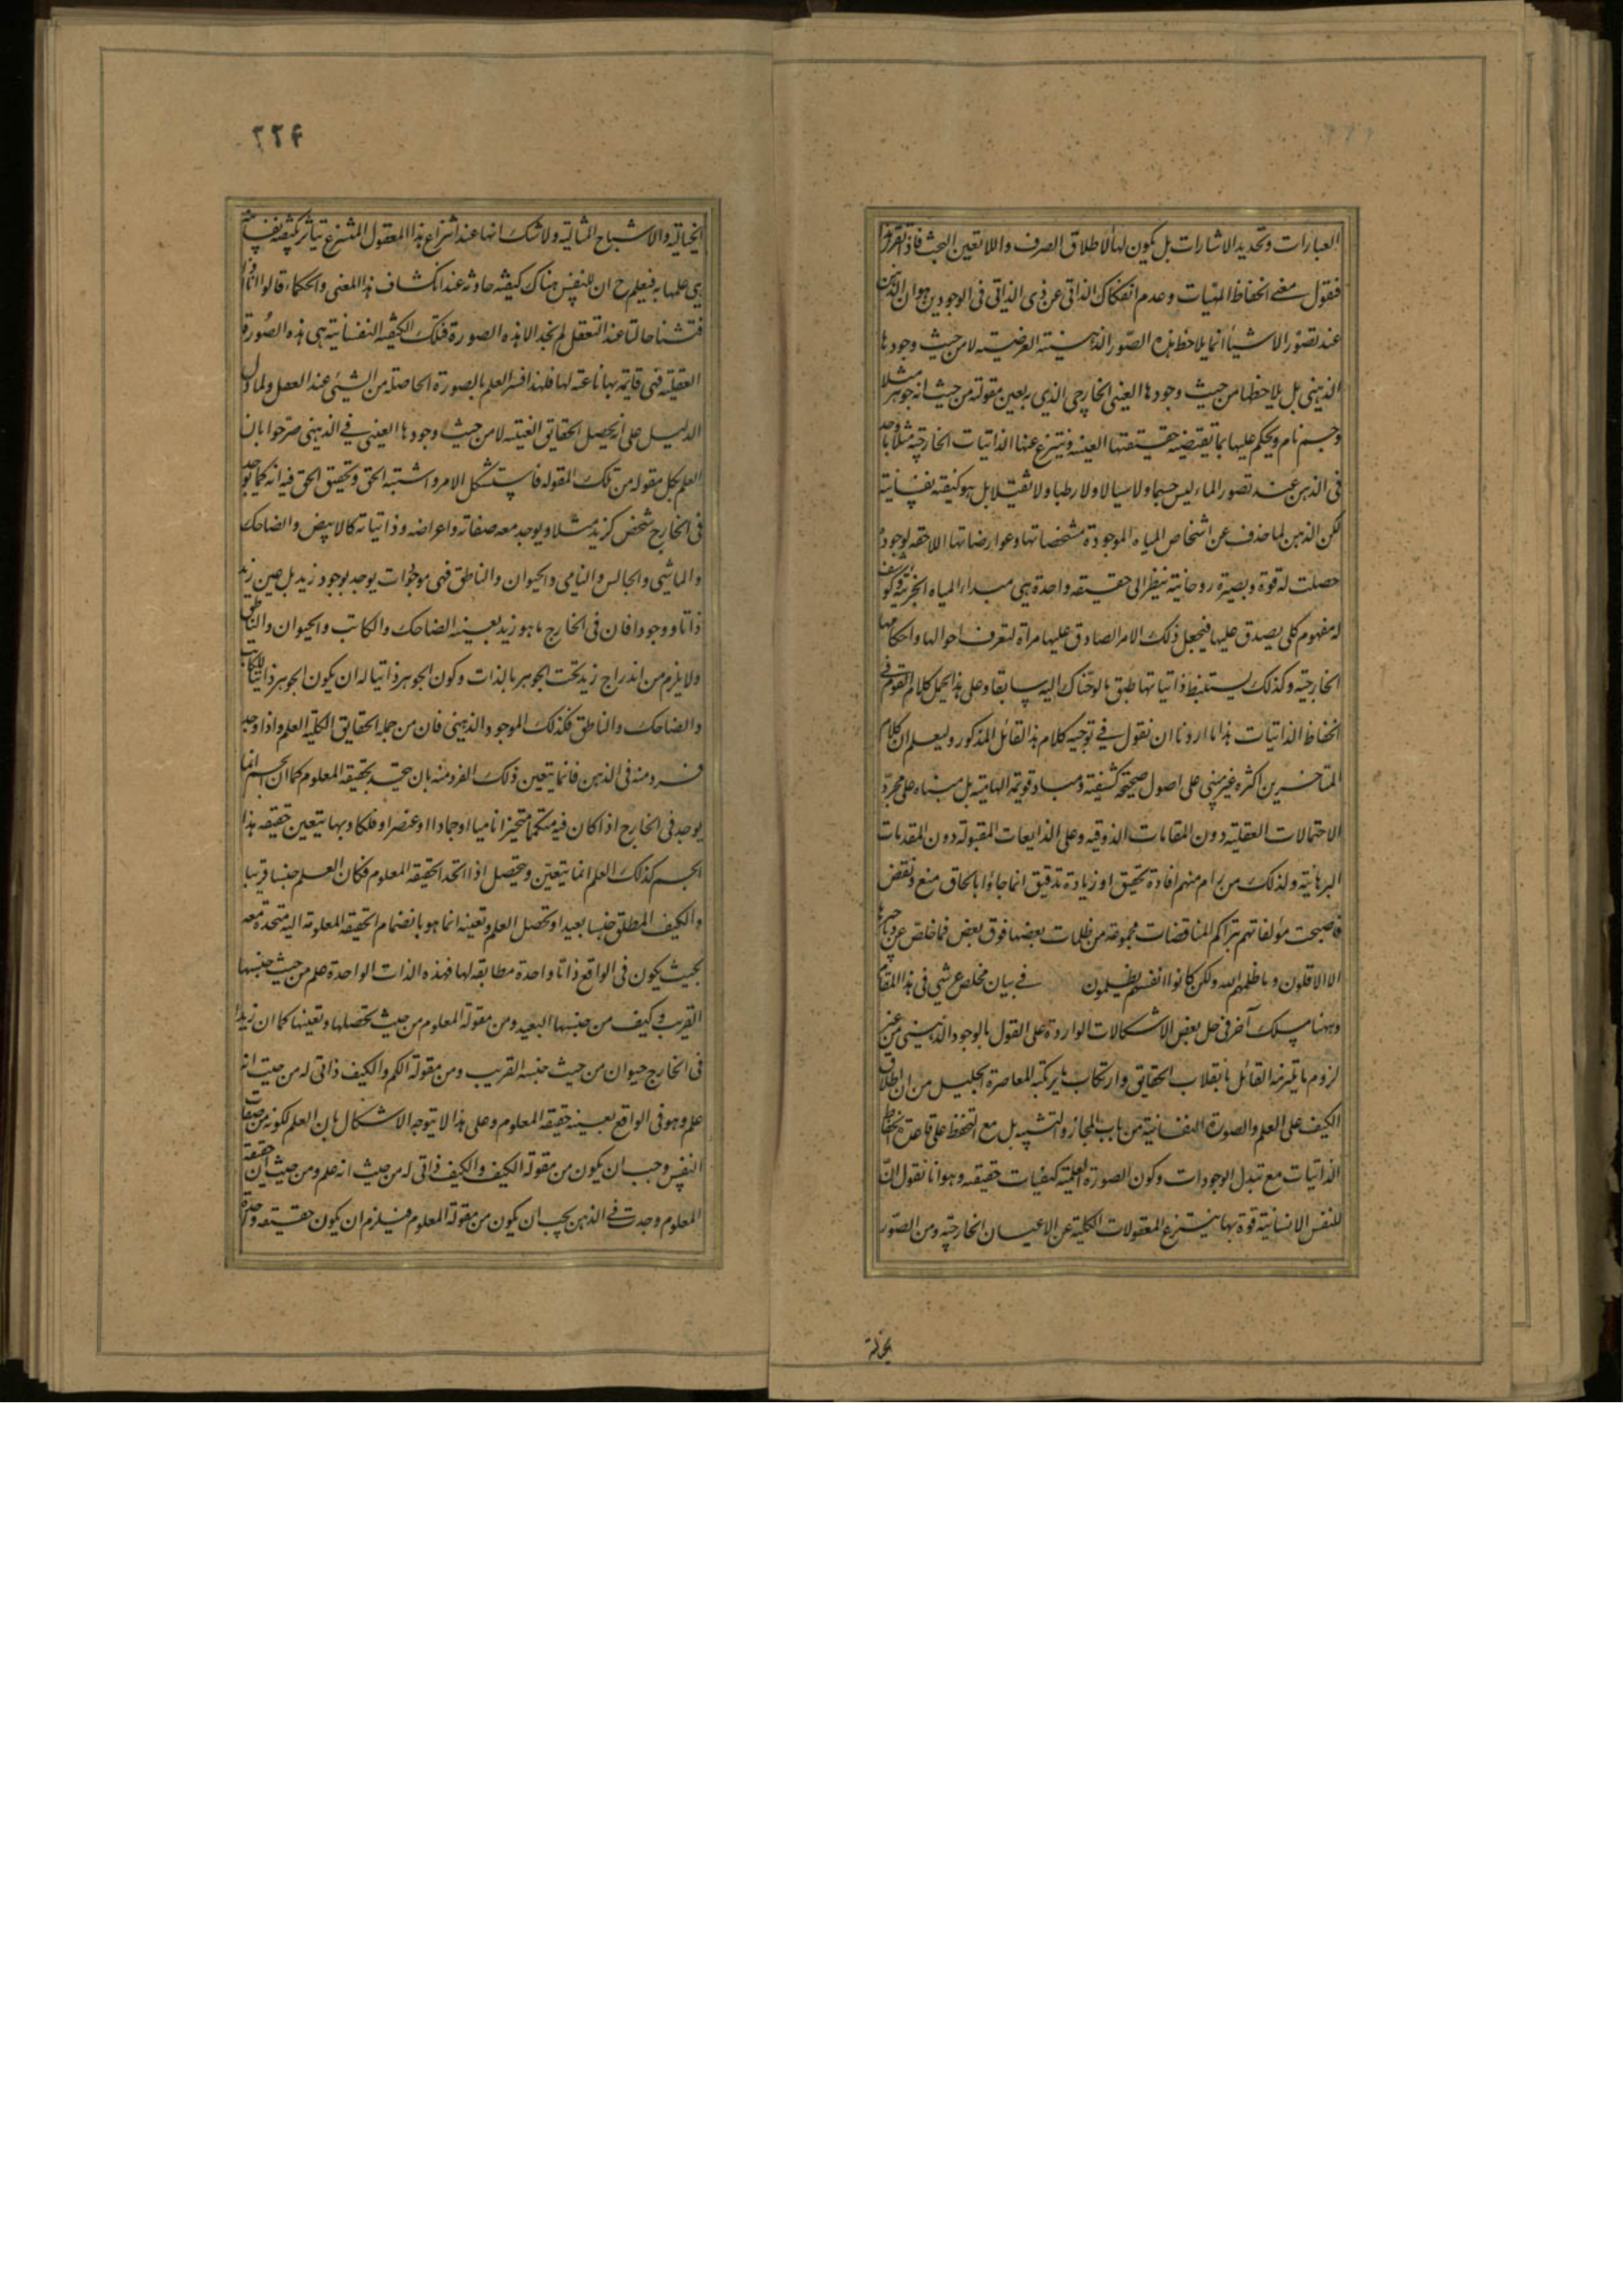 العبارات وتحديد الاشارات بل يكون لها الاطلاق الصرف واللا تعين البحت فاذا تقرر هذا
فنقول معنى انحفاظ المهيات وعدم انفكاك الذاتى عن ذى الذاتى فى الوجودين هو ان الذهن
عند تصور الاشياء انما يلاحظ هذه الصور الذهنية العرضية لا من حيث وجودها
الذهنى بل يلاحظها من حيث وجودها العينى الخارجى الذى به بعين مقولته من حيث انه جوهر مثلا
وجسم نام ويحكم عليها بما تقتضيه حقيقتها العينية وينتزع عنها الذاتيات الخارجية مثلا ما وجد
فى الذهن عند تصور الماء ليس جسما ولا سيالا ولا رطبا ولا ثقيلا بل هو كيفية نفسانية
لكن الذهن لما حذف عن اشخاص المياه الموجودة مشخصاتها وعوارضاتها اللاحقة لوجوده
حصلت له قوة وبصيرة روحانية ينظر الى حقيقة واحدة هى مبدء المياه الجزئية وينكشف
له مفهوم كلى يصدق عليها فيجعل ذلك الامر الصادق عليها مرآة لتعرف احوالها واحكامها
الخارجية وكذلك يستنبط ذاتياتها طبق ما لوحناك اليه سابقا وعلى هذا يحمل كلام القوم فى
انحفاظ الذاتيات هذا ما اردنا ان نقول فى توجيه كلام هذا القائل المذكور وليعلم ان كلام
المتاخرين اكثره غير مبنى على اصول صحيحة كشفية ومباد قويمة الهامية بل مبناه على مجرد
الاحتمالات العقلية دون المقامات الذوقية وعلى الذايعات المقبولة دون المقدمات
البرهانية ولذلك من رام منهم افادة تحقيق او زيادة تدقيق انما جاؤا بالحاق منع ونقض
فاصبحت مؤلفاتهم بتراكم المناقضات مجموعة من ظلمات بعضها فوق بعض فما خلص عن دياجيرها
الا الاقلون وما ظلمهم الله ولكن كانوا انفسهم يظلمون فى بيان مخلص عرشى فى هذا المقام
وههنا مسلك آخر فى حل بعض الاشكالات الواردة على القول بالوجود الذهنى من غير
لزوم ما يلتزمه القائل بانقلاب الحقايق وارتكاب ما يرتكبه المعاصر الجليل من ان اطلاق
الكيف على العلم والصورة النفسانية من باب المجاز والتشبيه بل مع التحفظ على قاعدة انحفاظ
الذاتيات مع تبدل الوجودات وكون الصورة العلمية كيفيات حقيقة وهو انا نقول ان
للنفس الانسانية قوة بها ينتزع المعقولات الكلية عن الاعيان الخارجية ومن الصور
٢٢۴
الخيالية والاشباح المثالية ولا شك انها عند انتزاع هذا المعقول المنتزع يتاثر بكيفية نفسانية
هى علمها به فيعلم ح ان للنفس هناك كيفية حادثة عند انكشاف هذا المعنى والحكماء قالوا انا اذا
فتشنا حالنا عند التعقل لم نجد الا هذه الصورة فتلك الكيفية النفسانية هى هذه الصورة
العقلية فهى قايمة بها ناعتة لها فلهذا فسر العلم بالصورة الحاصلة من الشيئ عند العقل ولما دل
الدليل على انه يحصل الحقايق العينية لا من حيث وجودها العينى فى الذهنى صرحوا بان
العلم بكل مقولة من تلك المقولة فاستشكل الامر واشتبه الحق وتحقيق الحق فيه انه كما يوجد
فى الخارج شخص كزيد مثلا ويوجد معه صفاته واعراضه وذاتياته كالابيض والضاحك
والماشى والجالس والنامى والحيوان والناطق فهى موجودات يوجد بوجود زيد بل عين زيد
ذاتا ووجودا فان فى الخارج ما هو زيد بعينه الضاحك والكاتب والحيوان والناطق
ولا يلزم من اندراج زيد تحت الجوهر بالذات وكون الجوهر ذاتيا له ان يكون الجوهر ذاتيا للكاتب
والضاحك والناطق فكذلك الموجود الذهنى فان من جملة الحقايق الكلية العلم واذا وجد
فرد منه فى الذهن فانما يتعين ذلك الفرد منه بان يتحد بحقيقة المعلوم كما ان الجسم انما
يوجد فى الخارج اذا كان فيه متكمما متحيزا ناميا او جمادا او عنصرا او فلكا وبها يتعين حقيقة هذا
الجسم كذلك العلم انما يتعين ويتحصل اذا اتحد الحقيقة المعلوم فكان العلم جنسا قريبا
والكيف المطلق جنسا بعيدا وتحصل العلم وتعينه انما هو بانضمام الحقيقة المعلومة اليه متحدة معه
بحيث يكون فى الواقع ذاتا واحدة مطابقة لها فهذه الذات الواحدة علم من حيث جنسها
القريب وكيف من جنسها البعيد ومن مقولة المعلوم من حيث تحصلها وتعينها كما ان زيدا
فى الخارج حيوان من حيث جنسه القريب ومن مقولة الكم والكيف ذاتى له من حيث انه
علم وهو فى الواقع بعينه حقيقة المعلوم وعلى هذا لا يتوجه الاشكال بان العلم لكونه من صفات
النفس وجب ان يكون من مقولة الكيف والكيف ذاتى له من حيث انه علم ومن حيث ان حقيقة
المعلوم وجدت فى الذهن يجب ان يكون من مقولة المعلوم فيلزم ان يكون حقيقة واحدة